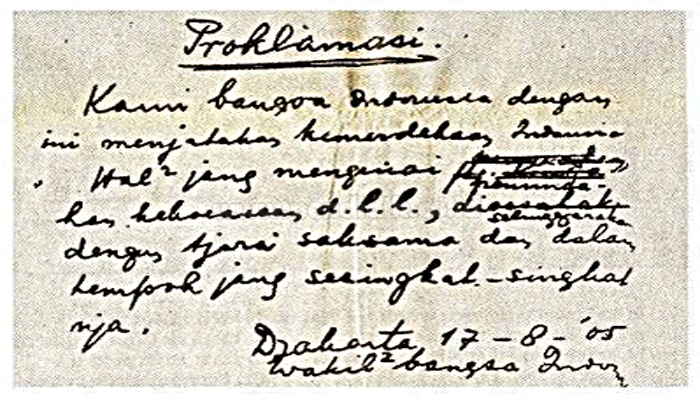 Proklamasi.
Kami bangsa Indonesia dengan
ini menjatakan kemerdekaan Indonesia
Hal² jang mengenai
pemindahan
kekoeasaan d.l.l., dioesahakan
diselenggarakan
dengan tjara saksama dan dalam
tempoh jang sesingkat-singkat
nja.
Djakarta, 17 - 8 - '05
Wakil² bangsa Indonesia